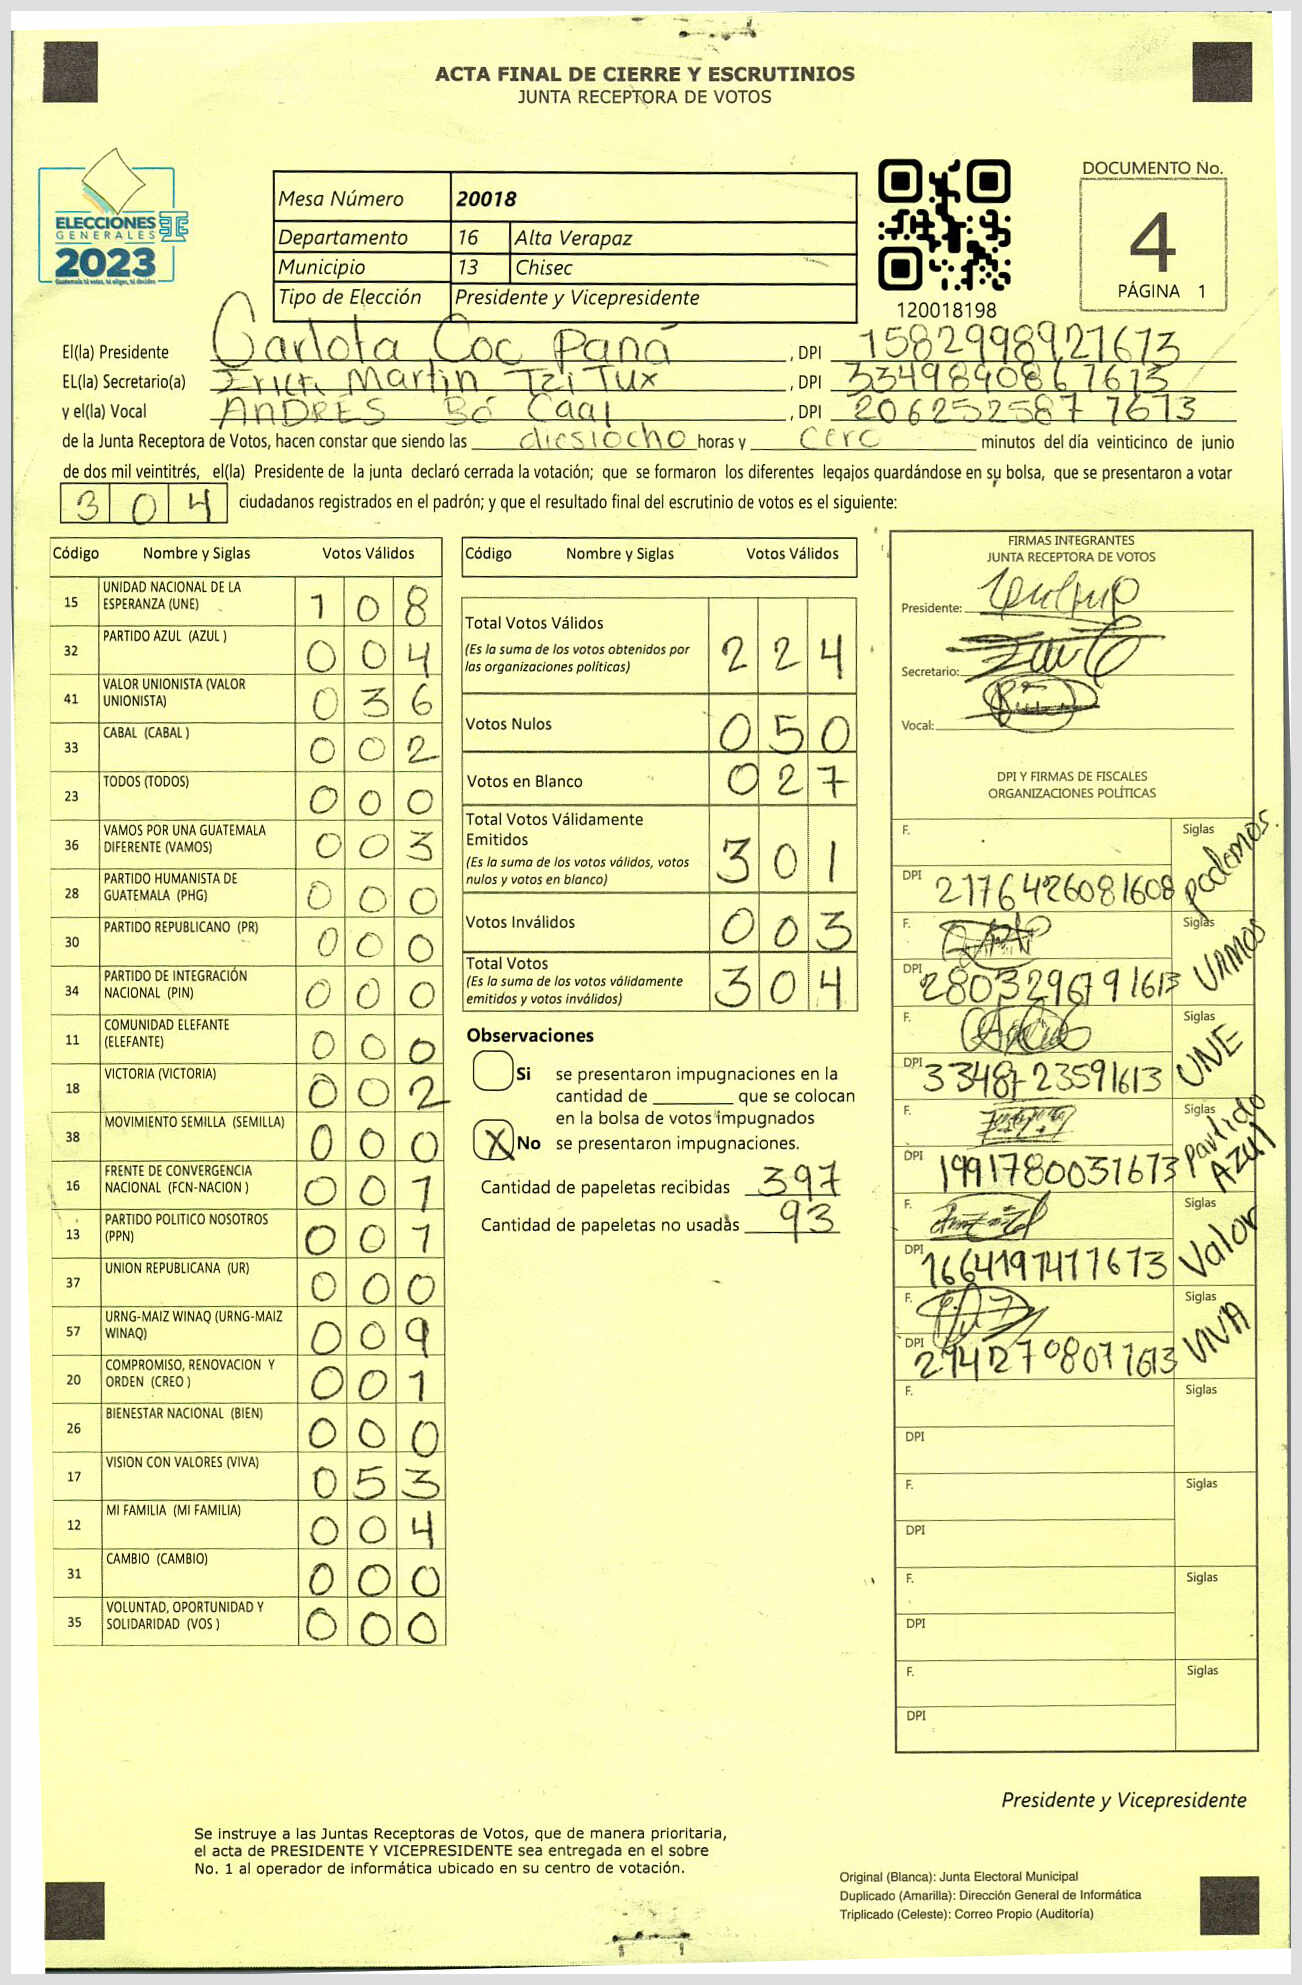 ACTA FINAL DE CIERRE Y ESCRUTINIOS
JUNTA RECEPTORA DE VOTOS
ELECCIONES
GENERALES
2023
Guatemala tú votas, tú eliges, tú decides
Mesa Número 20018
Departamento 16 Alta Verapaz
Municipio 13 Chisec
Tipo de Elección Presidente y Vicepresidente
120018198
DOCUMENTO No.
4
PÁGINA 1
El(la) Presidente Carlota Coc Paná, DPI 1582998921613
EL(la) Secretario(a) Erick Martin Tzi Tux, DPI 3349840861613
y el(la) Vocal ANDRÉS Bó Caal, DPI 2062525871613
de la Junta Receptora de Votos, hacen constar que siendo las diesiocho horas y cero minutos del día veinticinco de junio
de dos mil veintitrés, el(la) Presidente de la junta declaró cerrada la votación; que se formaron los diferentes legajos guardándose en su bolsa, que se presentaron a votar
304 ciudadanos registrados en el padrón; y que el resultado final del escrutinio de votos es el siguiente:
Código Nombre y Siglas Votos Válidos
15 UNIDAD NACIONAL DE LA ESPERANZA (UNE) 108
32 PARTIDO AZUL (AZUL ) 004
41 VALOR UNIONISTA (VALOR UNIONISTA) 036
33 CABAL (CABAL ) 002
23 TODOS (TODOS) 000
36 VAMOS POR UNA GUATEMALA DIFERENTE (VAMOS) 003
28 PARTIDO HUMANISTA DE GUATEMALA (PHG) 000
30 PARTIDO REPUBLICANO (PR) 000
34 PARTIDO DE INTEGRACIÓN NACIONAL (PIN) 000
11 COMUNIDAD ELEFANTE (ELEFANTE) 000
18 VICTORIA (VICTORIA) 002
38 MOVIMIENTO SEMILLA (SEMILLA) 000
16 FRENTE DE CONVERGENCIA NACIONAL (FCN-NACION ) 001
13 PARTIDO POLITICO NOSOTROS (PPN) 001
37 UNION REPUBLICANA (UR) 000
57 URNG-MAIZ WINAQ (URNG-MAIZ WINAQ) 009
20 COMPROMISO, RENOVACION Y ORDEN (CREO ) 001
26 BIENESTAR NACIONAL (BIEN) 000
17 VISION CON VALORES (VIVA) 053
12 MI FAMILIA (MI FAMILIA) 004
31 CAMBIO (CAMBIO) 000
35 VOLUNTAD, OPORTUNIDAD Y SOLIDARIDAD (VOS ) 000
Código Nombre y Siglas Votos Válidos
Total Votos Válidos 224
(Es la suma de los votos obtenidos por
las organizaciones políticas)
Votos Nulos 050
Votos en Blanco 027
Total Votos Válidamente
Emitidos 301
(Es la suma de los votos válidos, votos
nulos y votos en blanco)
Votos Inválidos 003
Total Votos 304
(Es la suma de los votos válidamente
emitidos y votos inválidos)
Observaciones
Si se presentaron impugnaciones en la
cantidad de ________ que se colocan
en la bolsa de votos impugnados
X No se presentaron impugnaciones.
Cantidad de papeletas recibidas 397
Cantidad de papeletas no usadas 93
FIRMAS INTEGRANTES
JUNTA RECEPTORA DE VOTOS
Presidente:
Secretario:
Vocal:
DPI Y FIRMAS DE FISCALES
ORGANIZACIONES POLÍTICAS
F. Siglas podemos.
DPI 2176426081608
F. Siglas VAMOS
DPI 2803296791613
F. Siglas UNE
DPI 3348723591613
F. Siglas partido Azul
DPI 1991780031613
F. Siglas Valor
DPI 1664197411613
F. Siglas VIVA
DPI 2742708071613
F. Siglas
DPI
F. Siglas
DPI
F. Siglas
DPI
F. Siglas
DPI
Presidente y Vicepresidente
Se instruye a las Juntas Receptoras de Votos, que de manera prioritaria,
el acta de PRESIDENTE Y VICEPRESIDENTE sea entregada en el sobre
No. 1 al operador de informática ubicado en su centro de votación.
Original (Blanca): Junta Electoral Municipal
Duplicado (Amarilla): Dirección General de Informática
Triplicado (Celeste): Correo Propio (Auditoría)